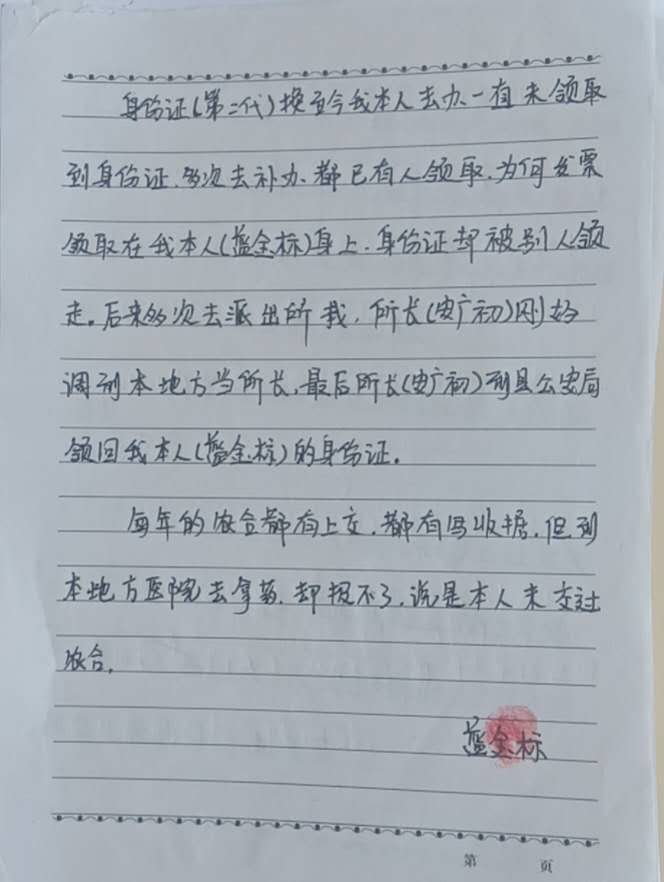 身份证(第二代)换至今我本人去办一直未领取
到身份证.多次去补办.都已有人领取.为何发票
领取在我本人(蓝金标)身上.身份证却被别人领
走。后来多次去派出所我,所长(史广初)刚好
调到本地方当所长,最后所长(史广初)到县公安局
领回我本人(蓝金标)的身份证。
每年的农合都有上交.都有写收据.但到
本地方医院去拿药.却报不了,说是本人未交过
农合.
蓝金标
第 页